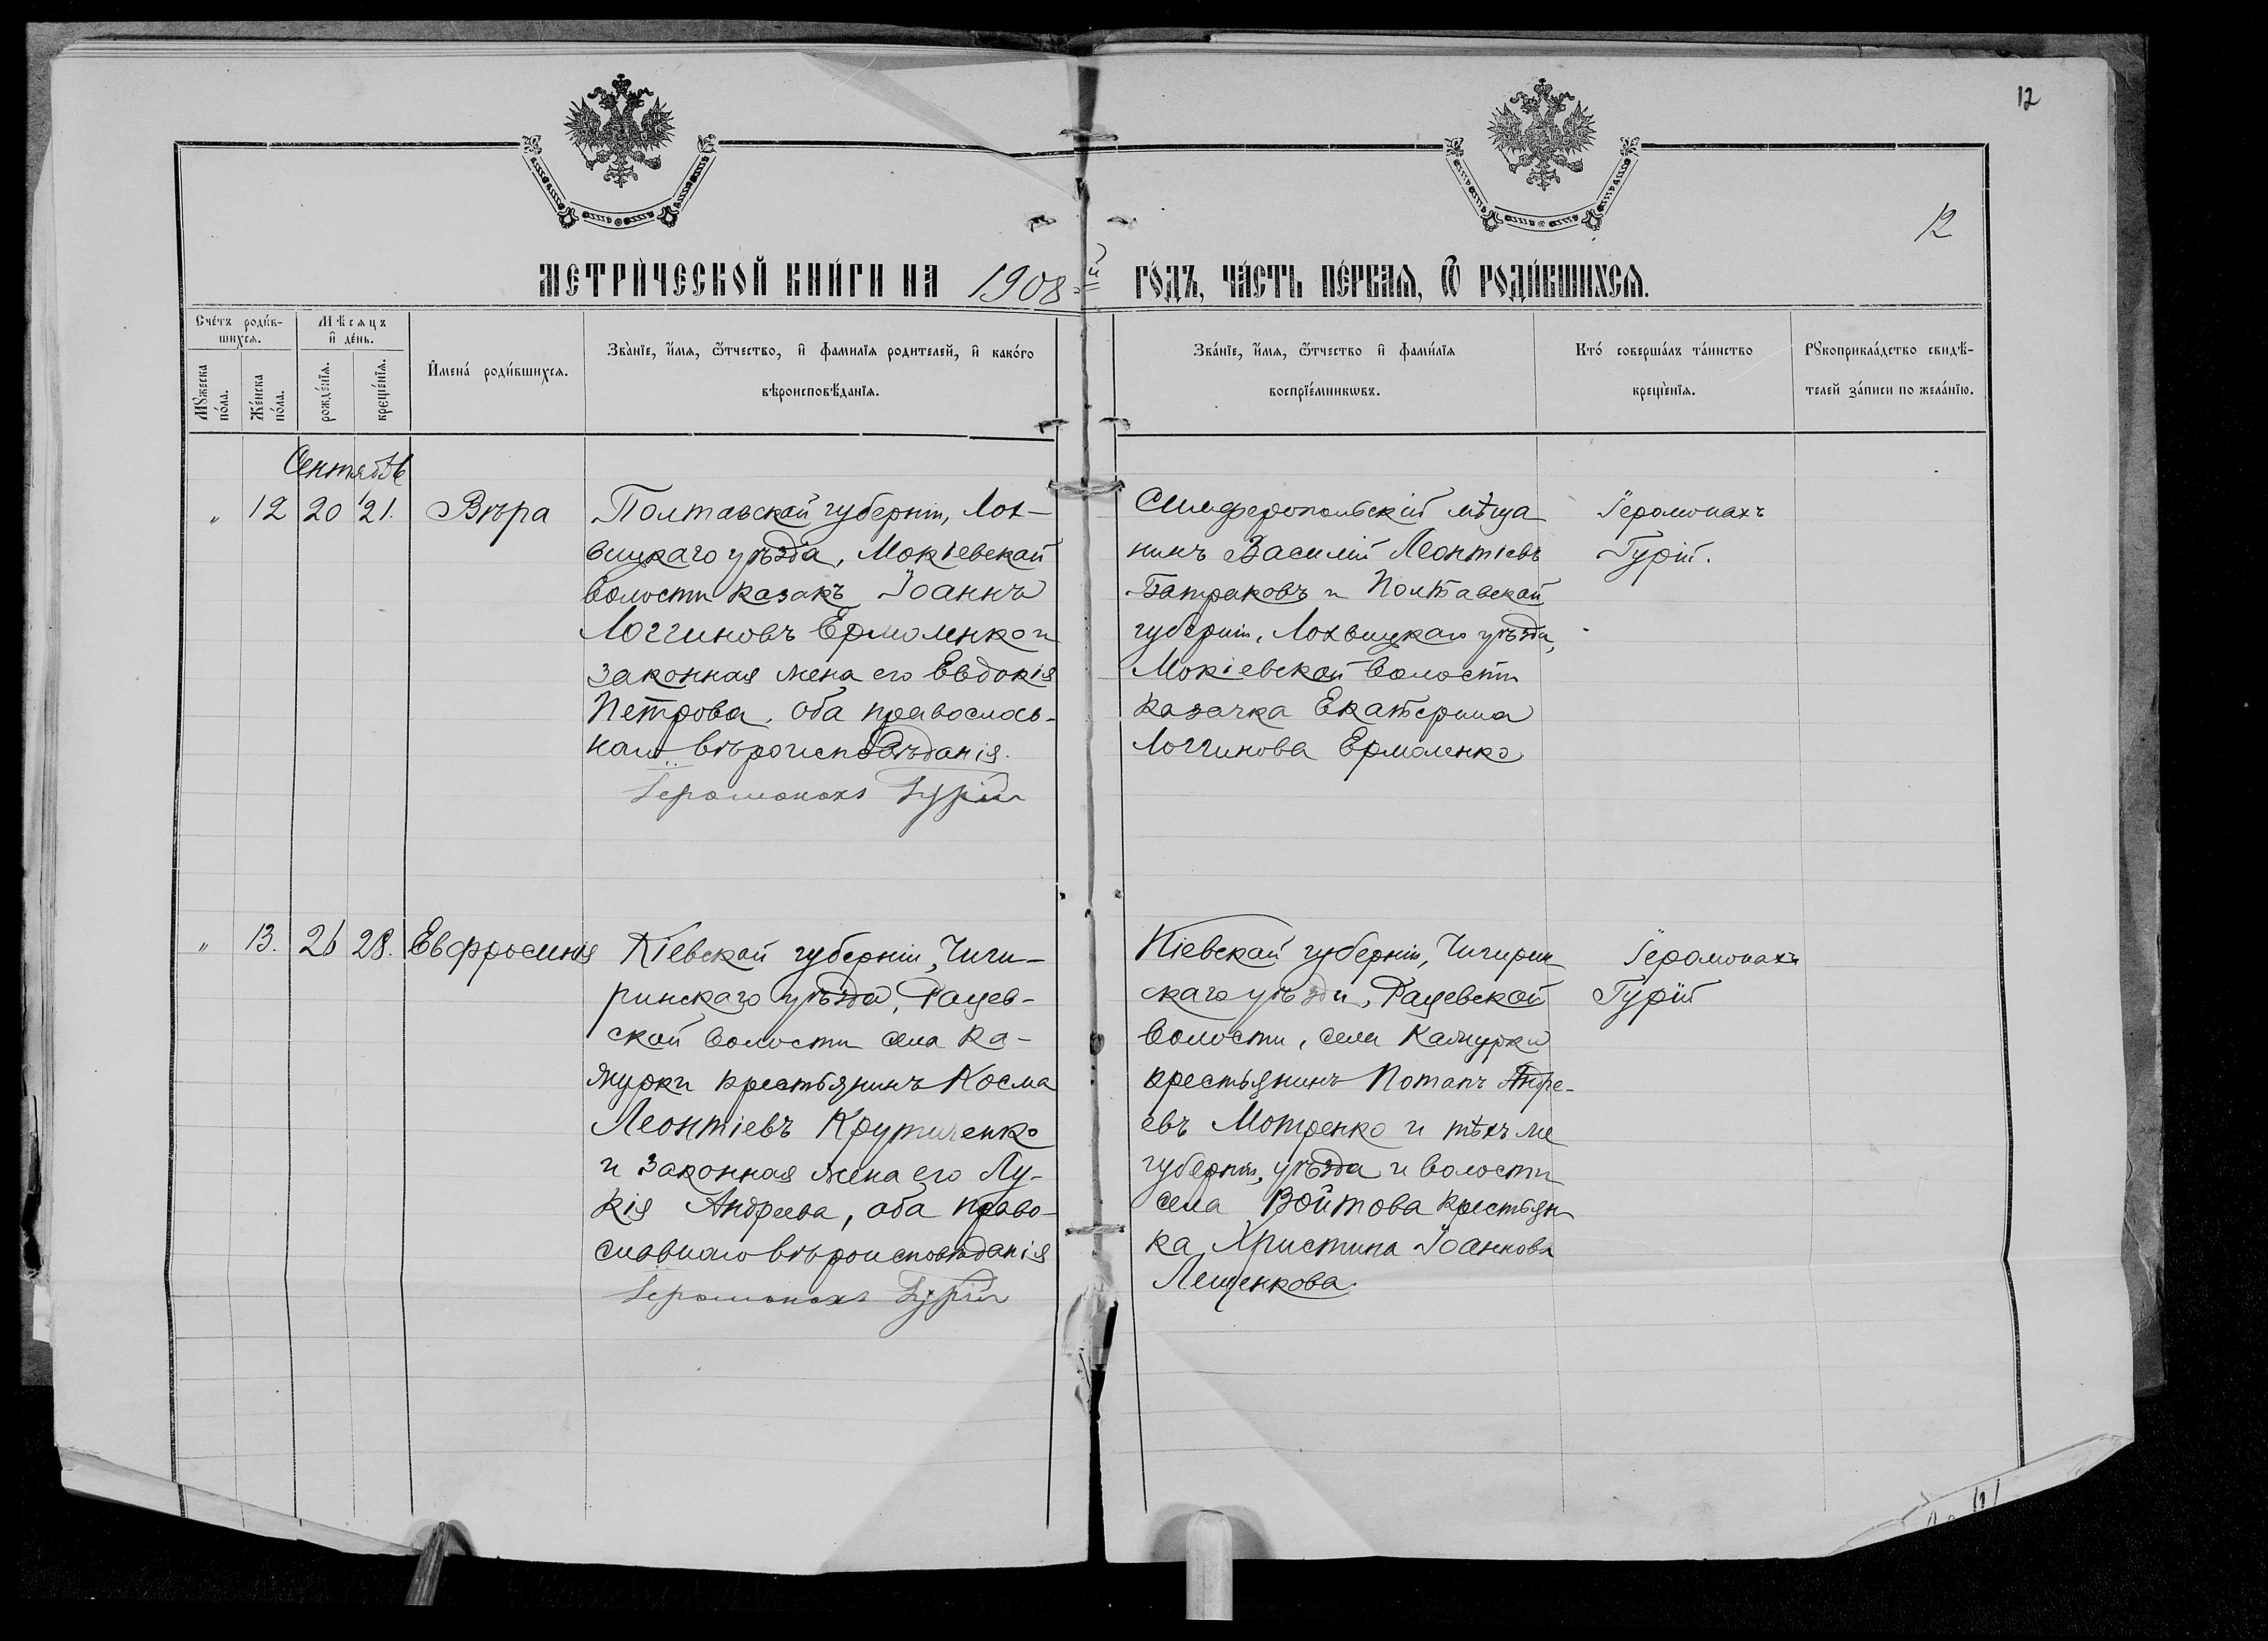 12
12
МЕТРИ́ЧЕСКОЙ КНИ́ГИ НА 1908-й ГО́ДЪ, ЧА́СТЬ ПЕ́РВАЯ, Ѿ РОДИ́ВШИХСЯ.
Сче́тъ роди́в-
шихся.
Мѣсяцъ
и҆ де́нь.
Мꙋ́жеска
по́ла.
Же́нска
по́ла.
рожде́нїя.
креще́нїя.
И҆мена́ роди́вшихся.
Зва́нїе, и҆́мя, ѻ҆́тчество, и҆ фамилїя родителей, и҆ како́го
вѣроисповѣ́данїя.
Зва́нїе, и҆́мя, ѻ҆́тчество и҆ фами́лїя
воспрїе́мникѡвъ.
Кто́ соверша́лъ та́инство
креще́нїя.
Рꙋкоприкла́дство свидѣ́-
телей за́писи по жела́нїю.
Сентябрь
" 12 20 21. Вѣра
Полтавской губернiи, Лох-
вицкаго уѣзда, Мокiевской
волости казакъ Iоаннъ
Логгиновъ Ермоленко и
законная жена его Евдокiя
Петрова, оба православ-
наго вѣроисповѣданiя.
Iеромонахъ Гурiй
Симферопольскiй мѣща
нинъ Василiй Леонтiевъ
Батраковъ и Полтавской
губернiи, Лохвицкаго уѣзда,
Мокiевской волости
казачка Екатерина
Логгинова Ермоленко
Iеромонахъ
Гурiй.
" 13. 26 28. Евфросинiя
Кiевской губернiи, Чиги-
ринскаго уѣзда, Рацев-
ской волости села Ка-
журки крестьянинъ Косма
Леонтiевъ Крутиченко
и законная жена его Лу-
кiя Андреева, оба право-
славнаго вѣроисповѣданiя
Iеромонахъ Гурiй
Кiевской губернiи, Чигирин
скаго уѣзда, Рацевской
волости, села Кажурки
крестьянинъ Потапъ Андре-
евъ Мотренко и тѣхъ же
губернiи, уѣзда и волости
села Войтова крестьян
ка Христина Iоаннова
Лещенкова.
Iеромонахъ
Гурiй